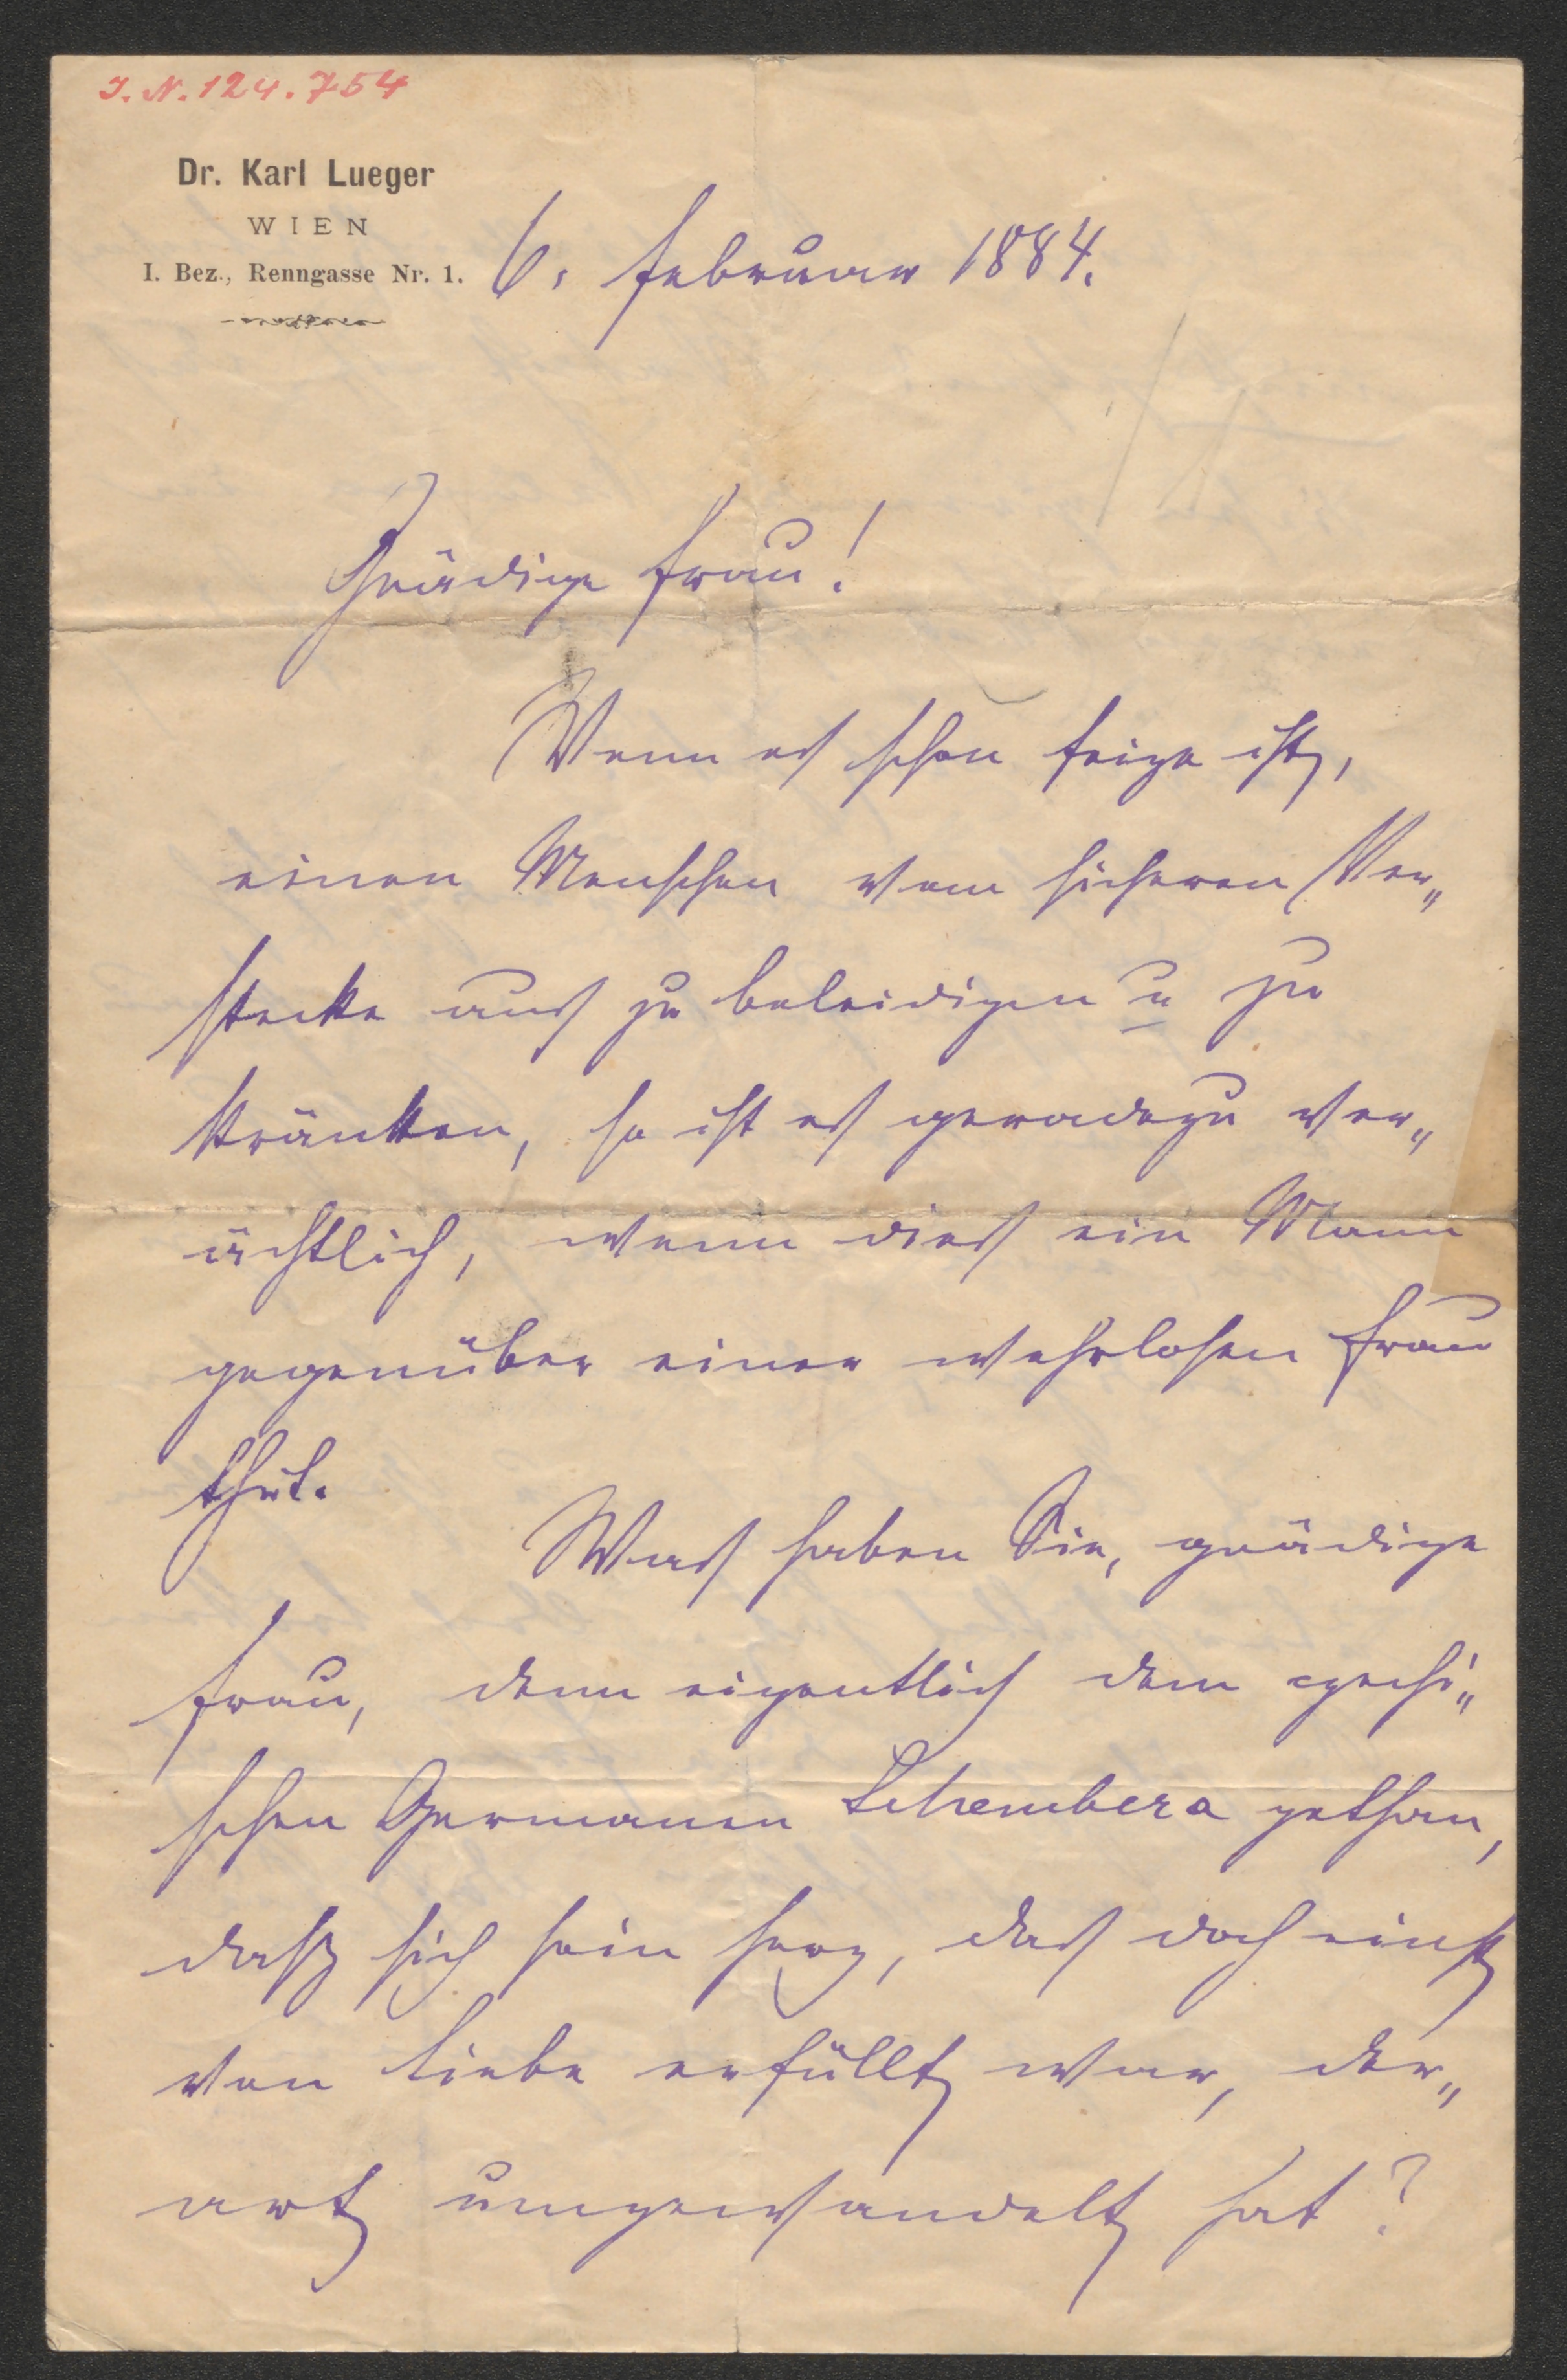 I. N. 124.754
Dr. Karl Lueger
WIEN
I. Bez., Renngasse Nr. 1.
6. Februar 1884.
Gnädige Frau!
Wenn es schon feige ist,
einen Menschen vom sicheren Ver„
stecke aus zu beleidigen u zu
kränken, so ist es geradezu ver„
ächtlich, wenn dies ein Mann
gegenüber einer wehrlosen Frau
thut.
Was haben Sie, gnädige
Frau, denn eigentlich dem czechi„
schen Germanen Schembera gethan,
daß sich sein Herz, das doch einst
von Liebe erfüllt war, der„
art umgewandelt hat?